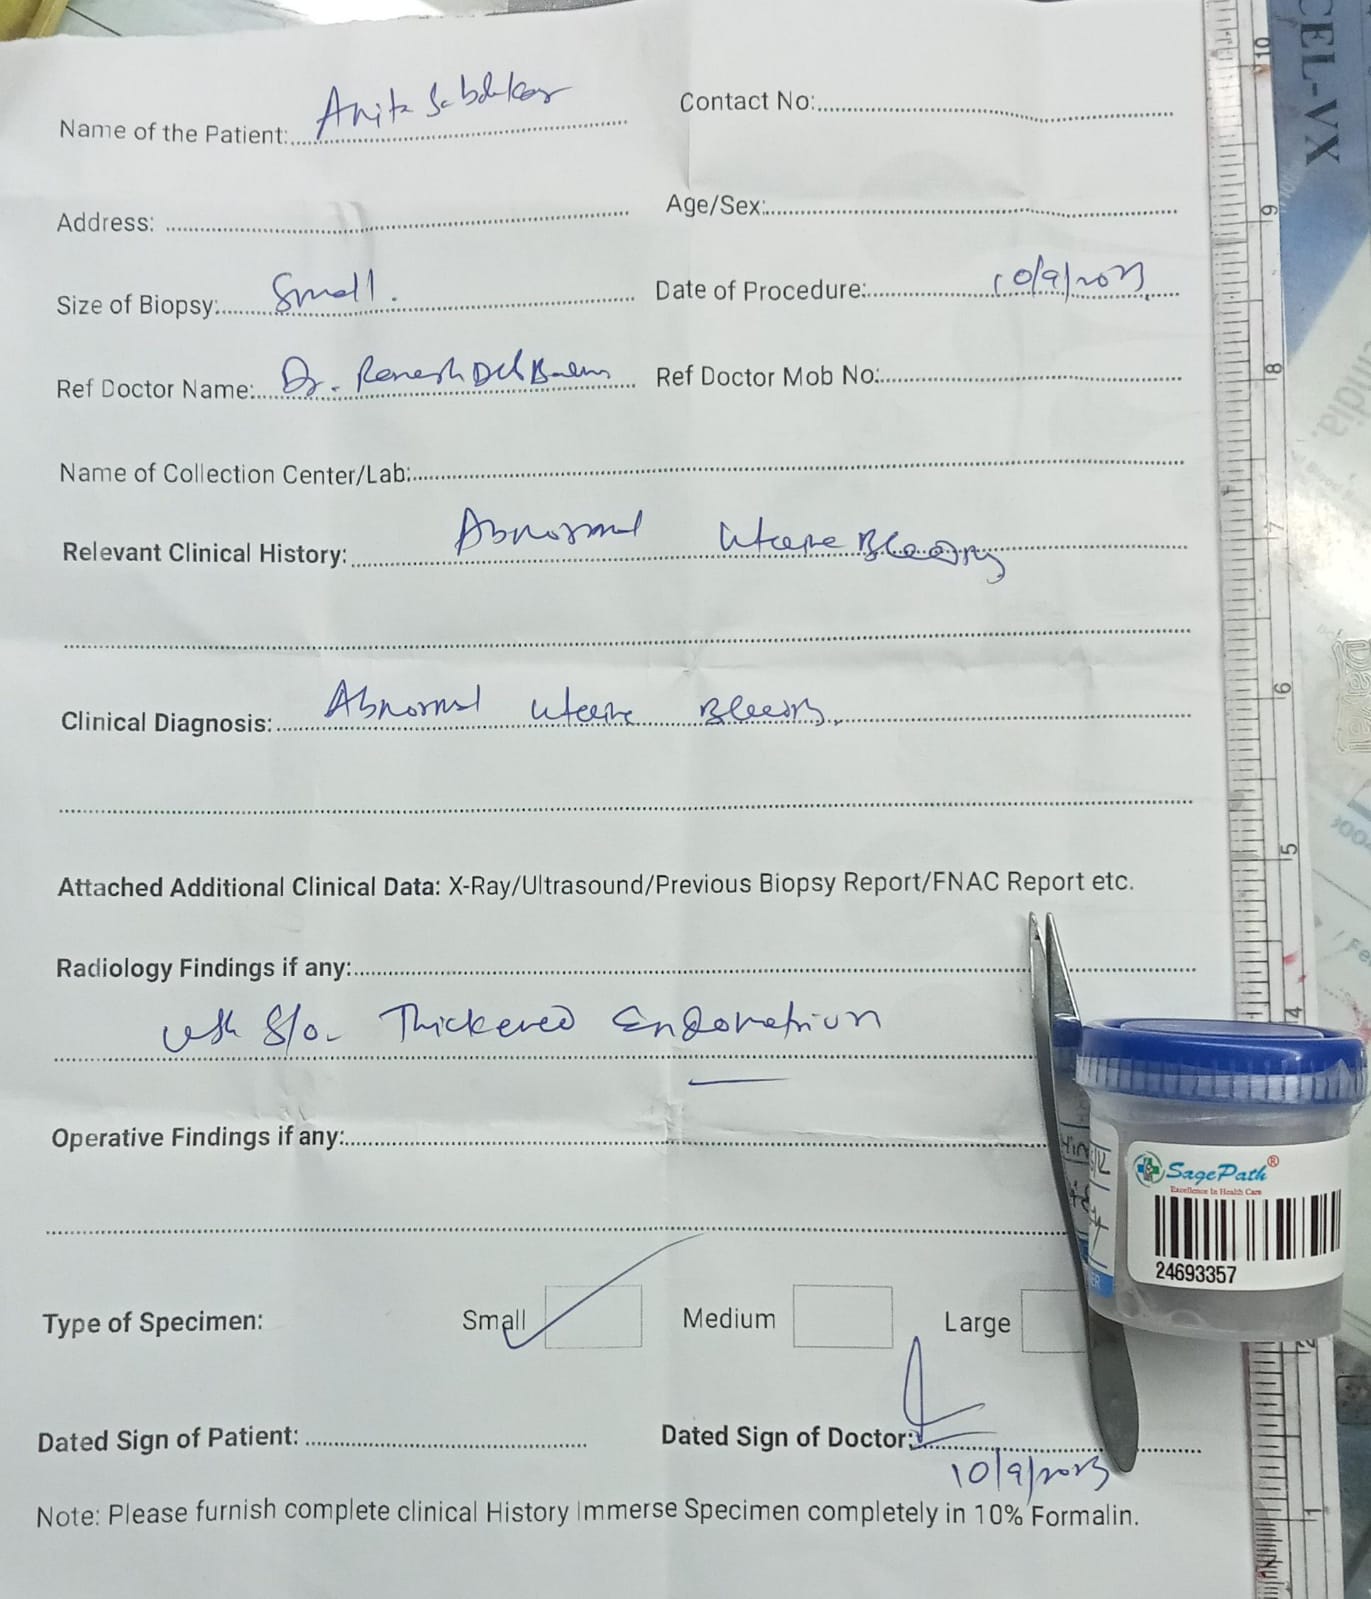 Name of the Patient: Anita
Contact No:
Address:
Age/Sex:
Size of Biopsy: Small.
Date of Procedure: 10/9/2023
Ref Doctor Name: Dr.
Ref Doctor Mob No:
Name of Collection Center/Lab:
Relevant Clinical History: Abnormal Uterine Bleeding
Clinical Diagnosis: Abnormal Uterine Bleeding
Attached Additional Clinical Data: X-Ray/Ultrasound/Previous Biopsy Report/FNAC Report etc.
Radiology Findings if any:
S/o - Thickened Endometrium
Operative Findings if any:
Type of Specimen: Small Medium Large
Dated Sign of Patient:
Dated Sign of Doctor:
10/9/2023
Note: Please furnish complete clinical History Immerse Specimen completely in 10% Formalin.
SagePath®
Excellence In Health Care
24693357
CEL-VX
10
9
8
7
6
5
4
1